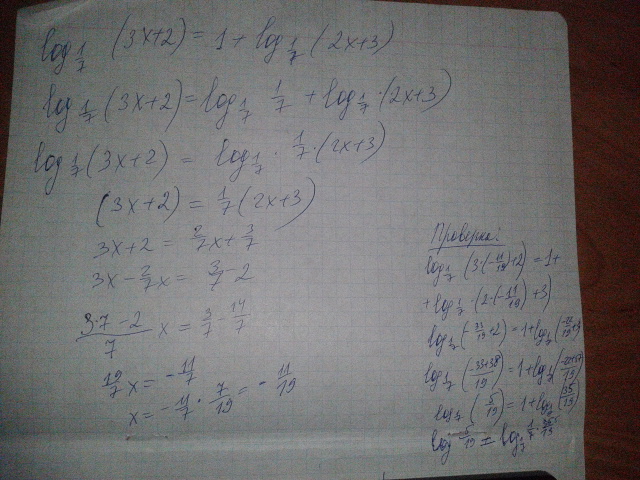 log_{1/7} (3x+2) = 1 + log_{1/7} (2x+3)
log_{1/7} (3x+2) = log_{1/7} 1/7 + log_{1/7} · (2x+3)
log_{1/7} (3x+2) = log_{1/7} · 1/7 · (2x+3)
(3x+2) = 1/7 (2x+3)
3x+2 = 2/7x + 3/7
3x - 2/7x = 3/7 - 2
3·7-2/7 x = 3/7 - 14/7
19/7 x = - 11/7
x = - 11/7 · 7/19 = - 11/19
Проверка:
log_{1/7} (3·(-11/19)+2) = 1 +
+ log_{1/7} · (2·(-11/19)+3)
log_{1/7} (-33/19+2) = 1 + log_{1/7} (-22/19+3
log_{1/7} (-33+38/19) = 1 + log_{1/7} (-22+57/19)
log_{1/7} (5/19) = 1 + log_{1/7} (35/19)
log 5/19 = log_{1/7} 1/7 · 35/19